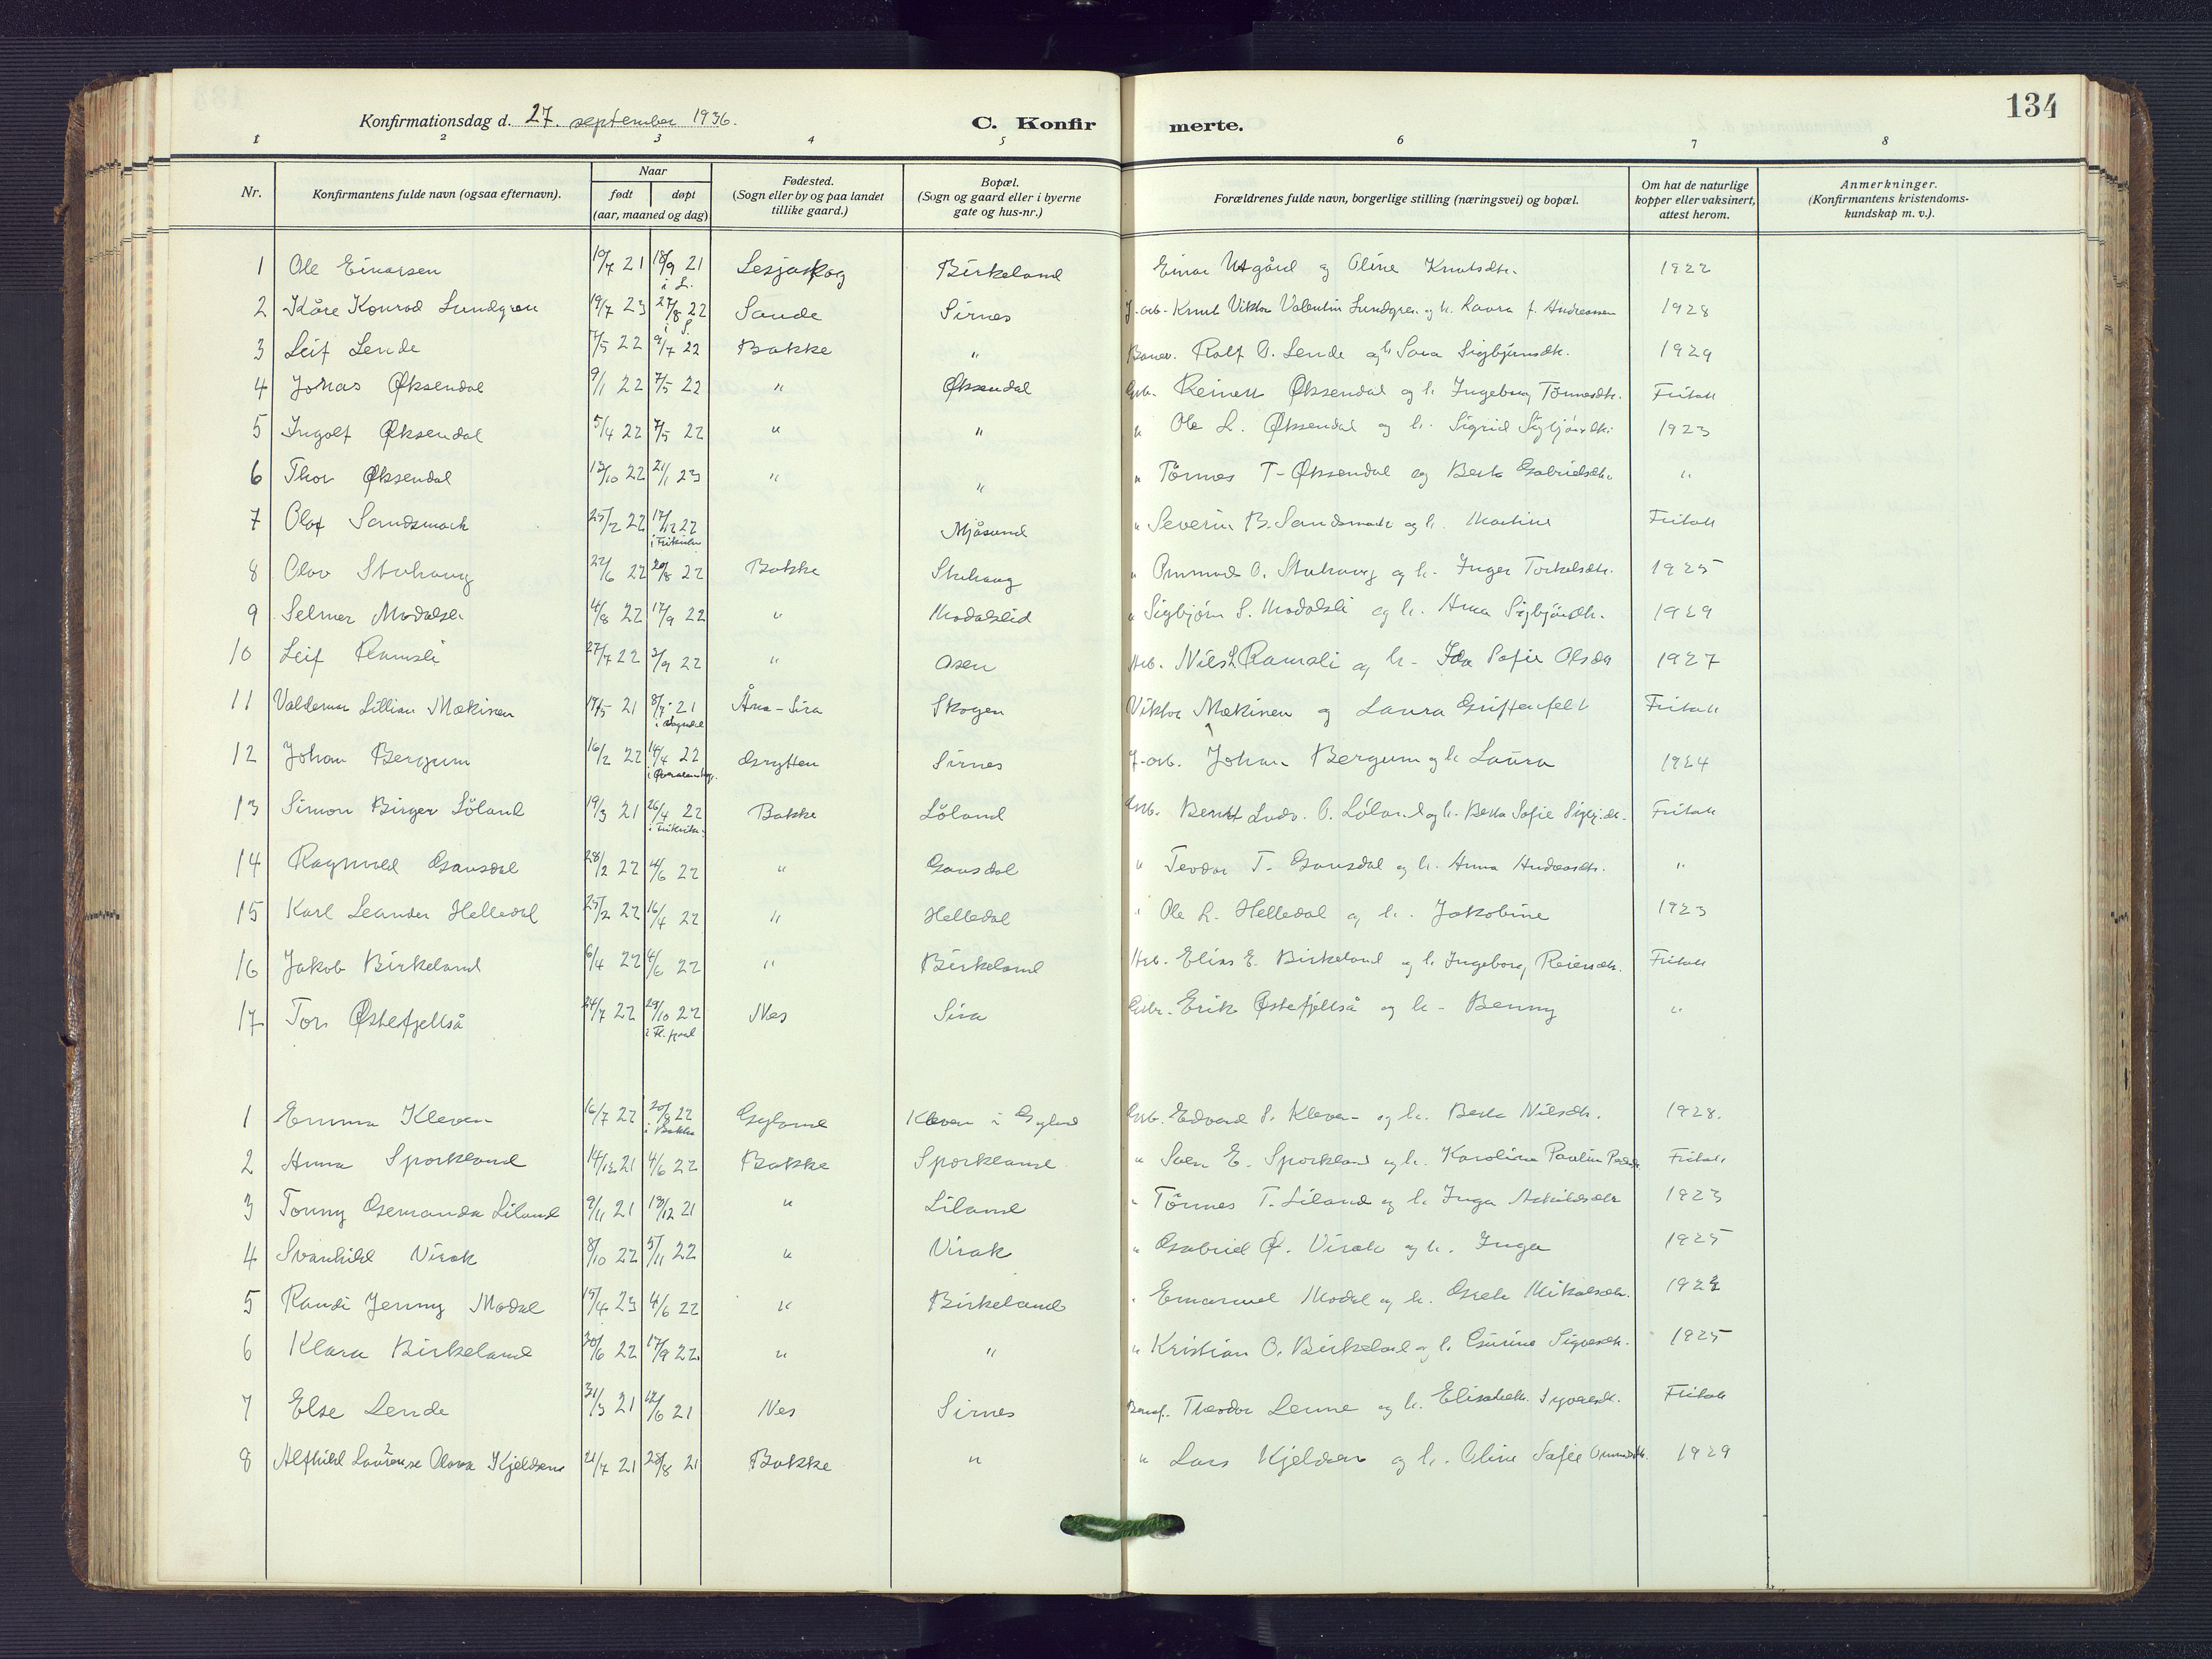 134
Konfirmationsdag d. 27. september 1936.
C. Konfirmerte.
1 2 3 4 5 6 7 8
Nr. Konfirmantens fulde navn (ogsaa efternavn). Naar født døpt (aar, maaned og dag) Fødested. (Sogn eller by og paa landet tillike gaard.) Bopæl. (Sogn og gaard eller i byerne gate og hus-nr.) Forældrenes fulde navn, borgerlige stilling (næringsvei) og bopæl. Om hat de naturlige kopper eller vaksinert, attest herom. Anmerkninger. (Konfirmantens kristendomskundskap m. v.).
1 Ole Einarsen 19/7 21 18/9 21 i L. Lesjaskog Birkeland Einar Utgård og Oline Knutsdtr. 1922
2 Kåre Konrad Lundgren 19/7 23 27/8 22 i S. Sande Sirnes J.arb. Knut Viktor Valentin Lundgren og h. Laura f. Andreassen 1928
3 Leif Lende 7/5 22 9/7 22 Bakke " Banev. Rolf O. Lende og h. Sara Sigbjørnsdtr. 1929
4 Jonas Øksendal 9/1 22 7/5 22 " Øksendal Grb. Reinert Øksendal og h. Ingeborg Tönnesdtr. Fritatt
5 Ingolf Øksendal 5/4 22 7/5 22 " " " Ole L. Øksendal og h. Sigrid Sigbjörnsdtr. 1923
6 Thor Øksendal 13/10 22 21/1 23 " " " Tönnes T. Øksendal og Berta Gabrielsdtr. "
7 Olaf Sandsmark 25/2 22 17/12 22 i Frikirken Mjåsund " Severin B. Sandsmark og h. Martine Fritatt
8 Olav Stuhaug 22/6 22 20/8 22 Bakke Stuhaug " Ommund O. Stuhaug og h. Inger Torkelsdtr. 1925
9 Selmer Modalsli 4/8 22 17/9 22 " Modalslid " Sigbjörn S. Modalsli og h. Anna Sigbjörnsdtr. 1929
10 Leif Ramsli 27/7 22 3/9 22 " Osen Arb. Nils L. Ramsli og h. Ida Sofie Olsdtr 1927
11 Valdemar Lillian Mækinen 19/5 21 8/7 21 i Sogndal Åna-Sira Skogen Viktor Mækinen og Laura Griffenfelt Fritatt
12 Johan Bergum 16/2 22 14/4 22 Grytten Sirnes J.arb. Johan Bergum og h. Laura 1924
13 Simon Birger Löland 19/3 21 26/4 22 i Frikirke. Bakke Löland Grb. Berntt Ludv. O. Löland og h. Berta Sofie Sigbj.dtr. Fritatt
14 Ragnvald Gausdal 28/2 22 4/6 22 " Gausdal " Teodor T. Gausdal og h. Anna Andersdtr. "
15 Karl Leander Helledal 25/2 22 16/4 22 " Helledal " Ole L. Helledal og h. Jakobine 1923
16 Jakob Birkeland 6/4 22 4/6 22 " Birkeland Arb. Elias E. Birkeland og h. Ingeborg Reiersdtr. Fritatt
17 Tor Østefjellså 24/7 22 29/10 22 Nes Sira Erik Østefjellså og h. Benny "
1 Emma Kleven 16/7 22 20/8 22 i Bakke Gyland Kleven i Gyland Grb. Edvard S. Kleven og h. Berta Nilsdtr. 1928.
2 Anna Sporkland 14/12 21 4/6 22 Bakke Sporkland " Sven E. Sporkland og h. Karoline Pauline Fritatt
3 Tonny Germanda Liland 9/11 21 18/12 21 " Liland " Tönnes T. Liland og h. Inga 1923
4 Svanhild Virak 8/10 22 5/11 22 " Virak " Gabriel Ø. Virak og h. Inga 1925
5 Randi Jenny Modal 19/4 23 4/6 22 " Birkeland " Emanuel Modal og h. Mikalsdtr. 1922
6 Klara Birkeland 30/6 22 17/9 22. " " " Kristian O. Birkeland og h. Gurine Sigvesdtr. 1925
7 Else Lende 31/3 21 12/6 21 Nes Sirnes Theodor Lenne og h. Elisabeth Fritatt
8 Alfhild Laurense Olava Kjeldsen 21/7 21 28/8 21 Bakke " " Lars Kjeldsen og h. Oline Sofie 1929